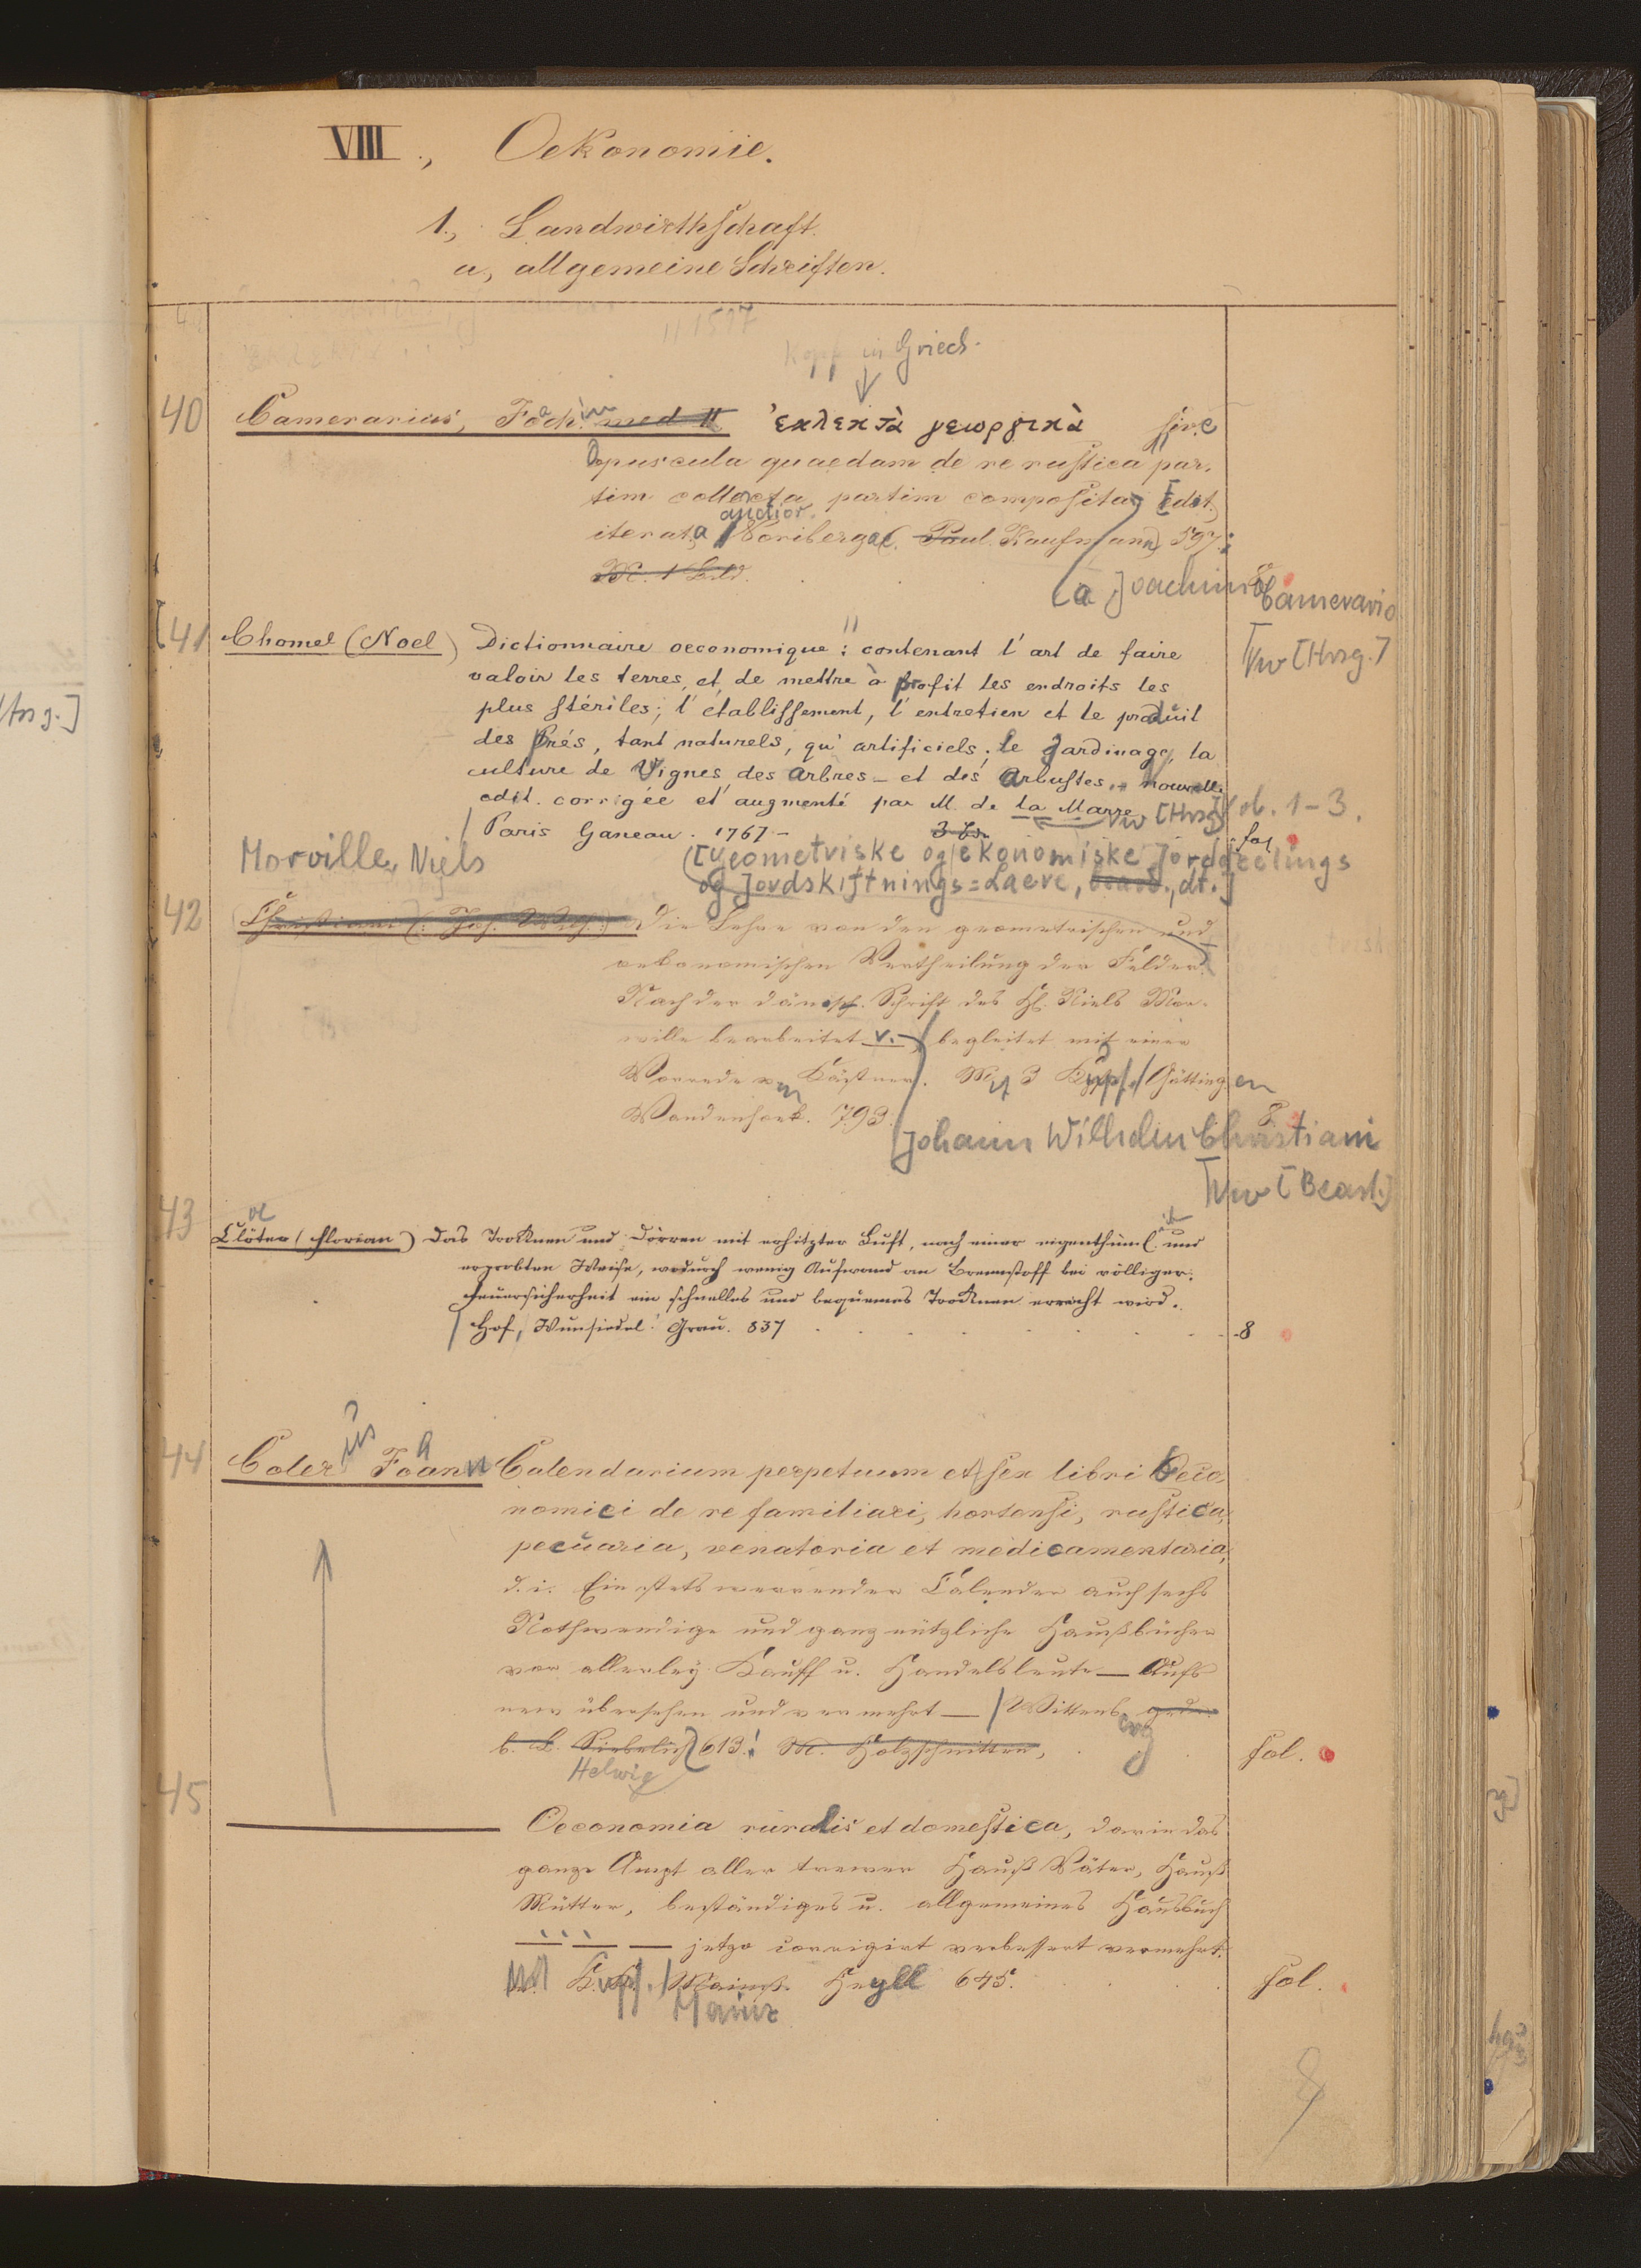 VIII., Oekonomie.
1., Landwirthschaft.
a, allgemeine Schriften.
Kopf in Griech.
40 Camerarius, Joach. med. ἐκλεκτὰ γεωργικὰ sive
Opuscula quaedam de re rustica par-
tim collecta, partim composita, Edit.
auctior.
iterata Noribergae. Paul. Kaufmann 597.
a Joachimo Camerario
8
[41 Chomel (Noel) Dictionnaire oeconomique: contenant l'art de faire
Vw [Hrsg.]
valoir les terres, et de mettre à profit les endroits les
plus stériles; l'établissement, l'entretien et le produit
des Prés, tant naturels, qu'artificiels; le Jardinage, la
culture de Vignes des Arbres – et des Arbustes, nouvelle
edit. corrigée et augmenté par M. de la Marre Vw [Hrsg.] Vol. 1-3.
Paris Ganeau. 1767 – 3 Bde. fol
Morville, Niels [Geometriske og ekonomiske Jorddeelings
og Jordskiftnings=Laere, dt.]
42 Christiani (Joh. Wilh.) Die Lehre von der geometrischen und
oekonomischen Vertheilung der Felder.
Nach der dänisch. Schrift des H. Niels Mor-
ville bearbeitet v. – begleitet mit einer
Vorrede von Kästner. Mit 3 Kupf. Götting en
Vandenhoek. 793. 8
Johann Wilhelm Christiani
Vw [Bearb.]
43 Clöter (Florian) Das Trocknen und Dörren mit erhitzter Luft, nach einer eigenthüml. und
erprobten Weise, wodurch wenig Aufwand an Brennstoff bei völliger
Feuersicherheit ein schnelles und bequemes Trocknen erreicht wird.
Hof, Wunsiedel. Grau. 837 8
44 Colerus Joann Calendarium perpetuum et sex libri Oeco-
nomici de re familiari, hortensi, rustica,
pecuaria, venatoria et medicamentaria,
d. i. Ein stets werender Calender auch sechs
Nothwendige und ganz nützliche Haußbücher
vor allerley Kauff u. Handelsleute – Aufs
new übersehen und vermehrt – Wittenberg
Helwig 613. M. Holzschnitten, fol.
45 Oeconomia ruralis et domestica, darin das
ganze Ampt aller trewer Hauß Väter, Hauß
Mütter, beständiges u. allgemeines Hausbuch
– jetzo corrigirt verbessert vermehrt.
Mit Kupf. Mainz. Heyll 645. fol.
Mainz